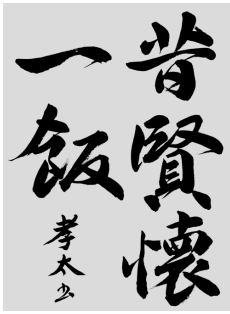 昔賢懐
一飯
孝太書